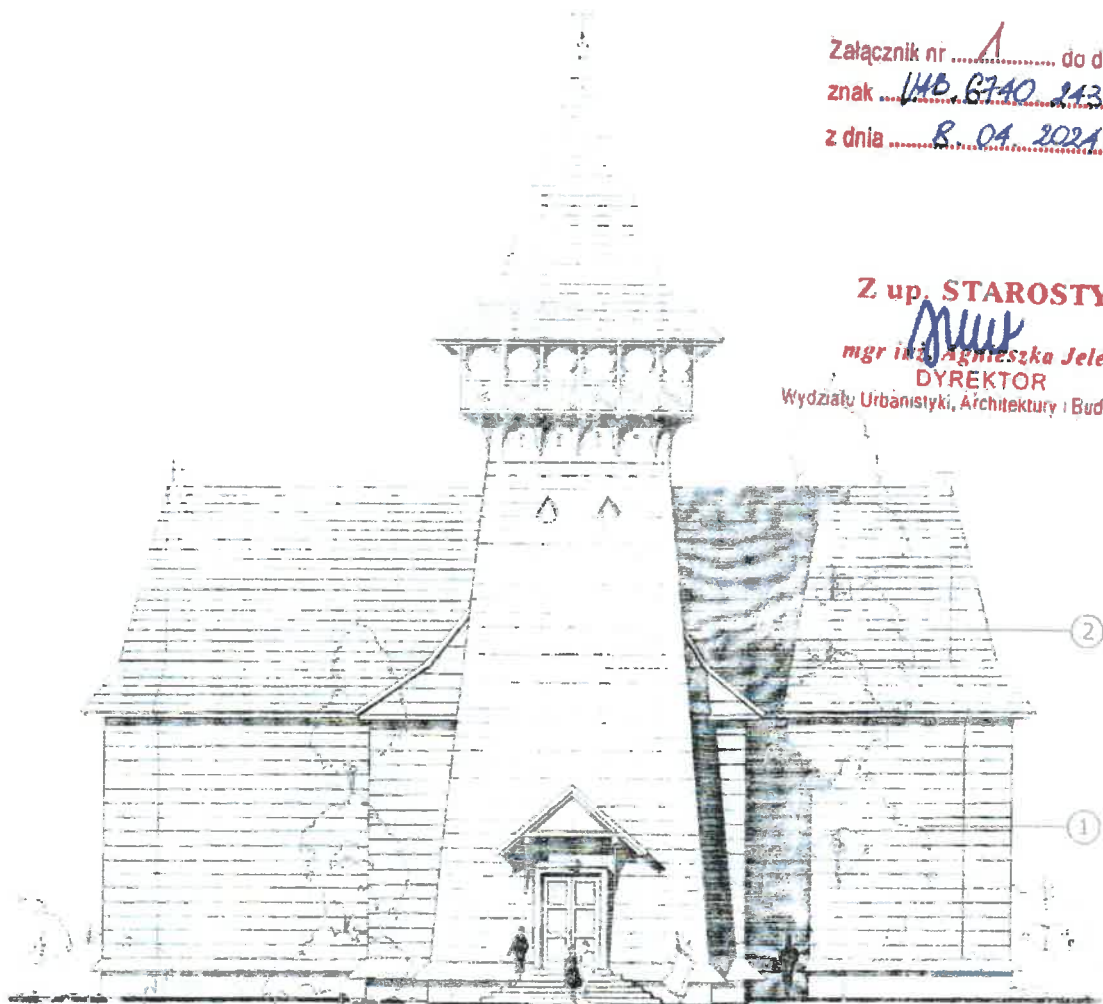 Załącznik nr ... 1 ... do d
znak ... 6740. 243
z dnia ... 8. 04. 2021
Z up. STAROSTY
mgr inż. Agnieszka Jele
DYREKTOR
Wydziału Urbanistyki, Architektury i Bud
2
1